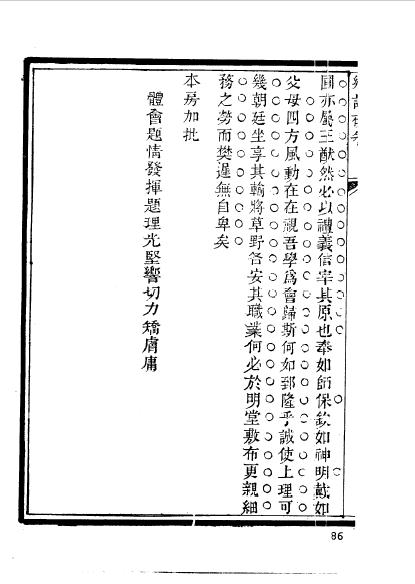 圃亦屬王猷然必以禮義信宰其原也奉如師保欽如神明戴如
父母四方風動在在視吾學爲會歸斯何如郅隆乎誠使上理可
幾朝廷坐享其輸將草野各安其職業何必於明堂敷布更親細
務之勞而樊遲無自卑矣
本房加批
體會題情發揮題理光堅響切力矯膚庸
86